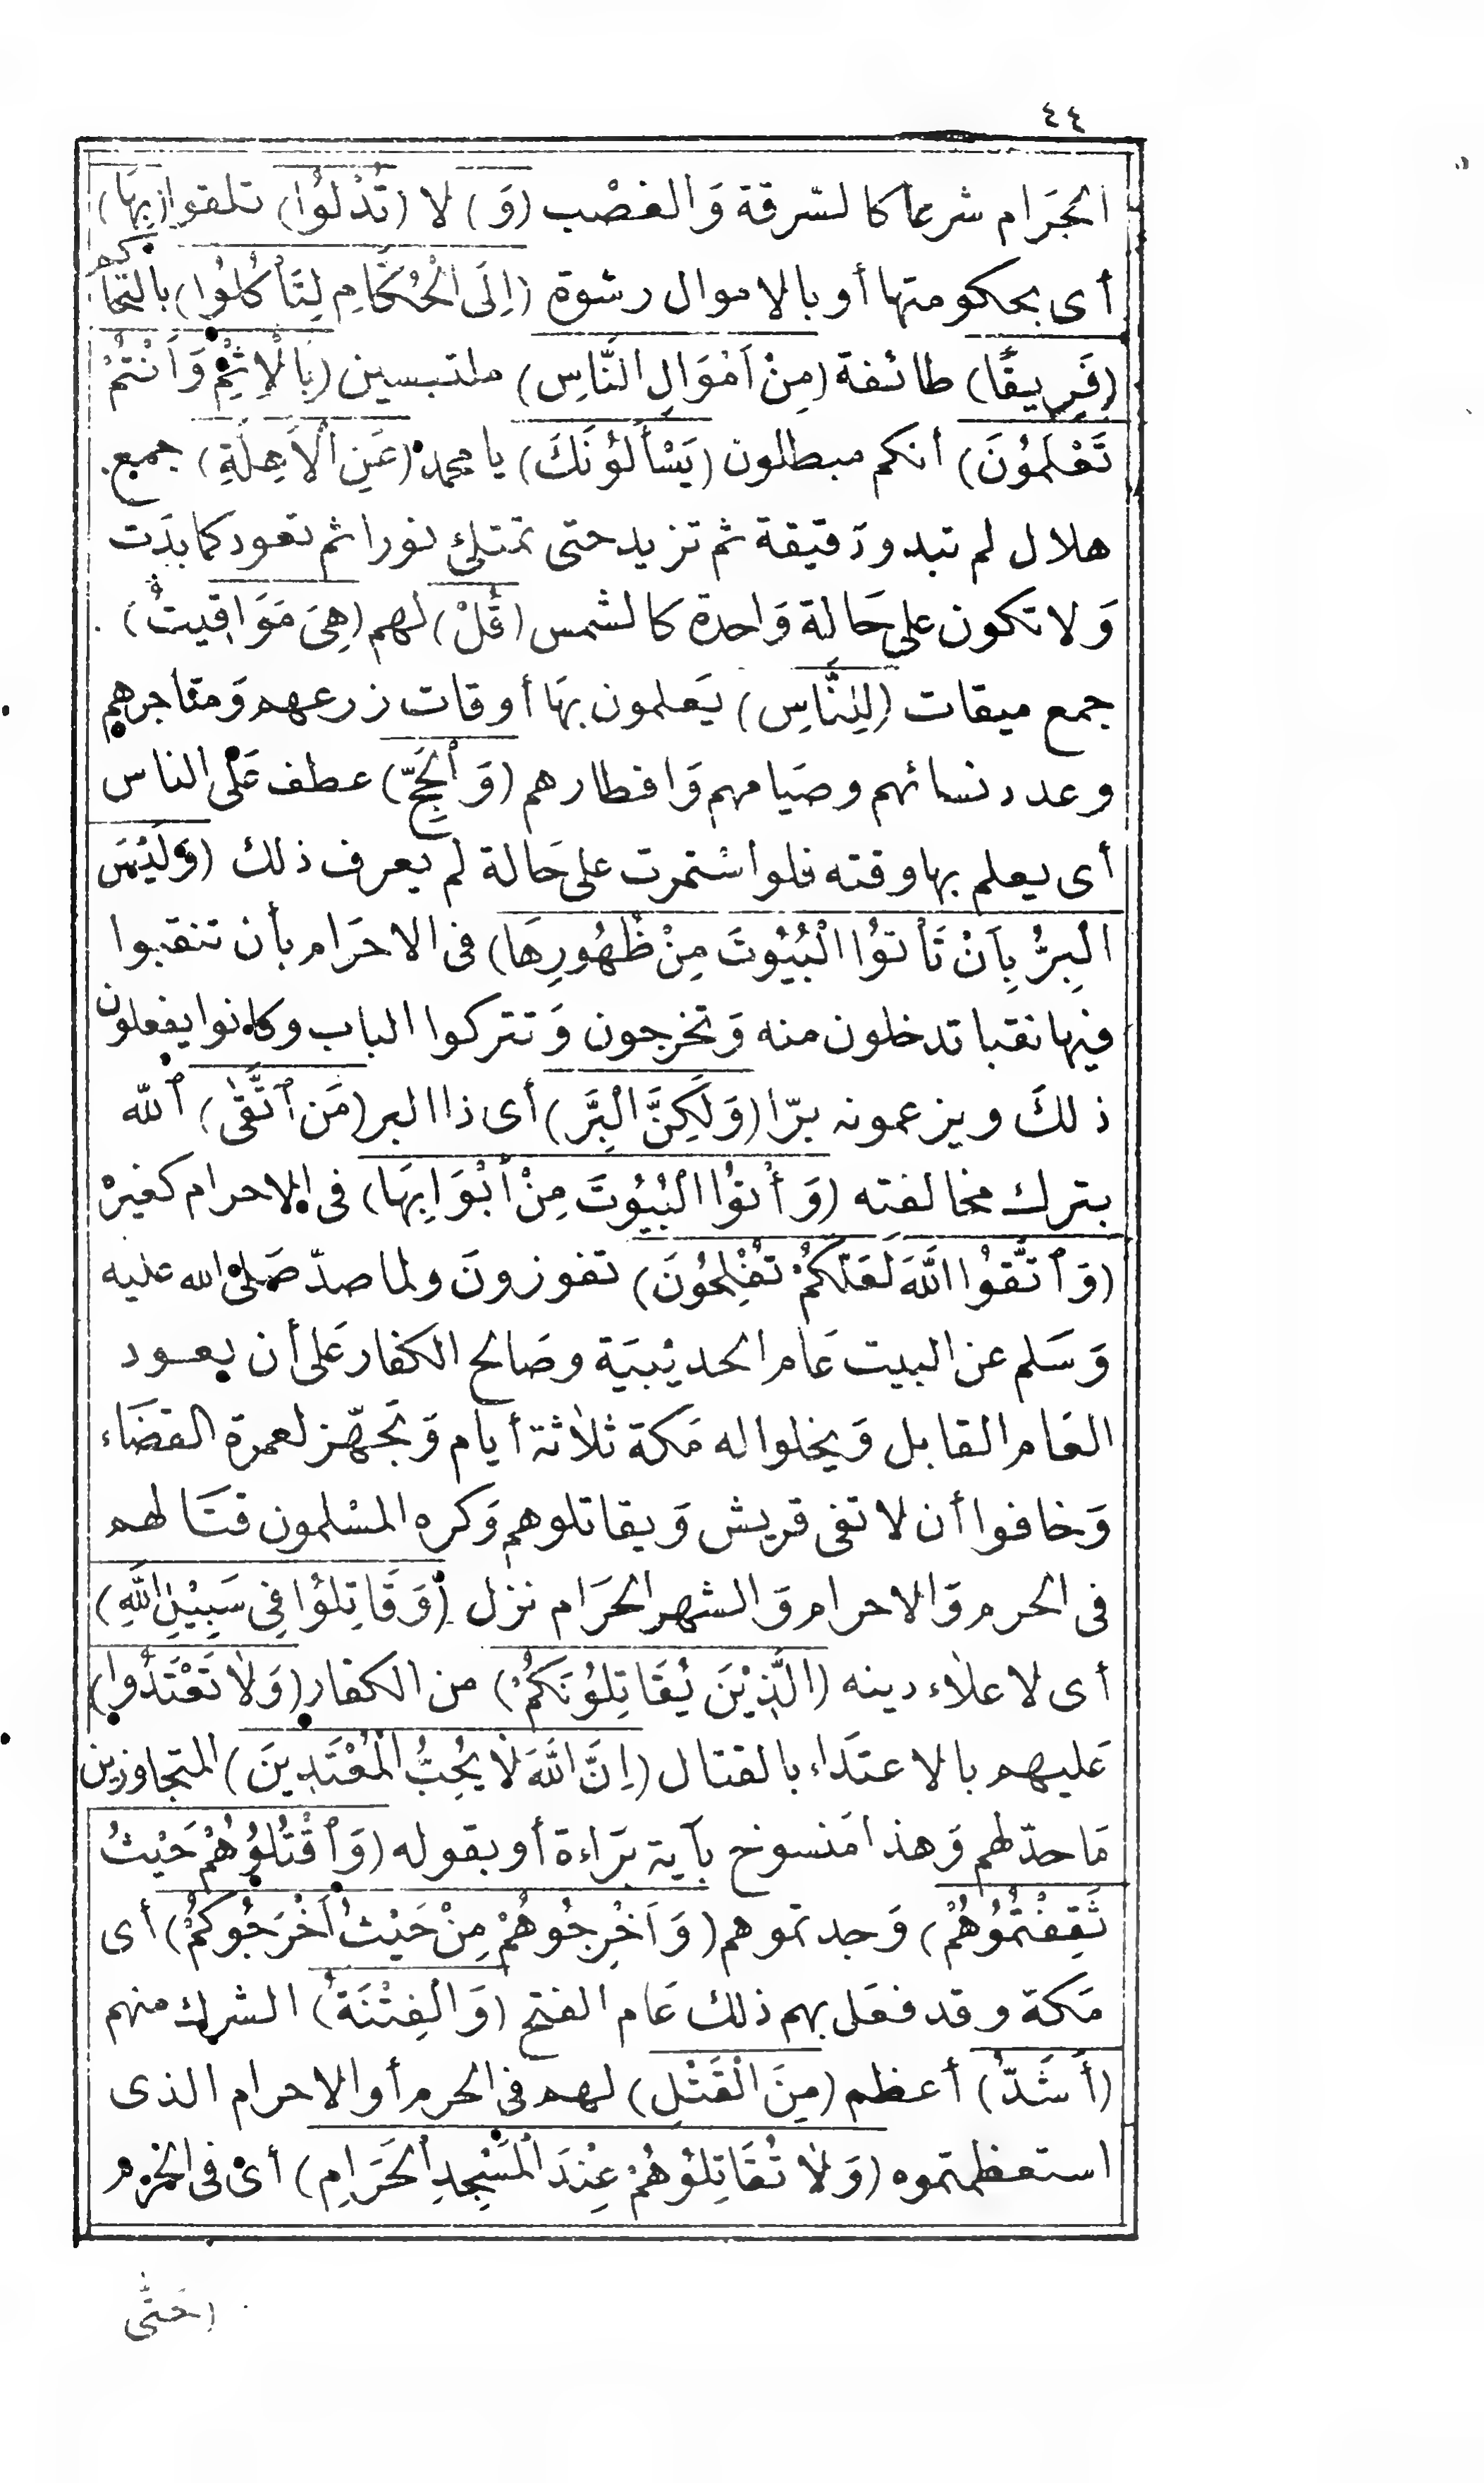 ٤٤
الحَرَام شرعا كالسّرقة وَالغصْب (وَ) لا (تُدْلُوْا) تلقوا (بِهَا)
أى بحكومتها أو بالاموال رشوة (اِلَى الْحُكَّامِ لِتَأْكُلُوْا) بالتحاكم
(فَرِيقًا) طائفة (مِنْ اَمْوَالِ النَّاسِ) ملتبسين (بِالْاِثْمِ وَاَنْتُمْ
تَعْلَمُوْنَ) أنكم مبطلون (يَسْأَلُوْنَكَ) يا محمد (عَنِ الْاَهِلَّةِ) جمع
هلال لم تبدو دَقيقة ثم تزيد حتى تمتلئ نورا ثم تعود كما بدَت
وَلا تكون على حَالة وَاحدة كالشمس (قُلْ) لهم (هِىَ مَوَاقِيتُ)
جمع ميقات (لِلنَّاسِ) يَعلمون بهَا أوقات زرعهم وَمتاجرهم
وعدد نسائهم وصَيامهم وَافطارهم (وَالْحَجِّ) عطف عَلى الناس
أى يعلم بها وقته فلو استمرت على حَالة لم يعرف ذلك (وَلَيْسَ
الْبِرُّ بِاَنْ تَأْتُوْا الْبُيُوْتَ مِنْ ظُهُورِهَا) فى الاحرَام بأن تنقبوا
فيها نقبا تدخلون منه وَتخرجون وَتتركوا الباب وكانوا يفعلون
ذلكَ ويزعمونه برّا (وَلَكِنَّ الْبِرَّ) أى ذا البر (مَنِ ٱتَّقَىٰ) ٱلله
بترك مخالفته (وَأْتُوْا الْبُيُوْتَ مِنْ أَبْوَابِهَا) فى الاحرام كغيره
(وَٱتَّقُوْا اللَّهَ لَعَلَّكُمْ تُفْلِحُوْنَ) تفوزونَ ولما صدّ صَلى الله عليه
وَسَلم عن البيت عَام الحديْبيَة وصَالح الكفار عَلى أن يعود
العَام القابل وَيخلوا له مَكة ثلاثة أيام وَتجَهّز لعمرة القضَاء
وَخافوا أن لا تفى قريش وَيقاتلوهم وَكره المسْلمون قتَالهم
فى الحرم وَالاحرام وَالشهر الحَرَام نزل (وَقَاتِلُوْا فِى سَبِيْلِ اللَّهِ)
أى لاعلاء دينه (الَّذِيْنَ يُقَاتِلُوْنَكُمْ) من الكفار (وَلَا تَعْتَدُوا)
عَليهم بالاعتدَاء بالقتال (اِنَّ اللَّهَ لَا يُحِبُّ الْمُعْتَدِينَ) المتجاوزين
مَا حدّ لهم وَهذا مَنسوخ بآية برَاءة أو بقوله (وَٱقْتُلُوْهُمْ حَيْثُ
ثَقِفْتُمُوْهُمْ) وَجدتموهم (وَاَخْرِجُوهُمْ مِنْ حَيْثُ اَخْرَجُوكُمْ) أى
مَكة وقد فعَل بهم ذلك عَام الفتح (وَالْفِتْنَةُ) الشرك منهم
(أَشَدُّ) أعظم (مِنَ الْقَتْلِ) لهم فى الحرم أو الاحرام الذى
استعظمتموه (وَلَا تُقَاتِلُوْهُمْ عِنْدَ الْمَسْجِدِ الْحَرَامِ) أىْ فى الحرم
(حَتَّى